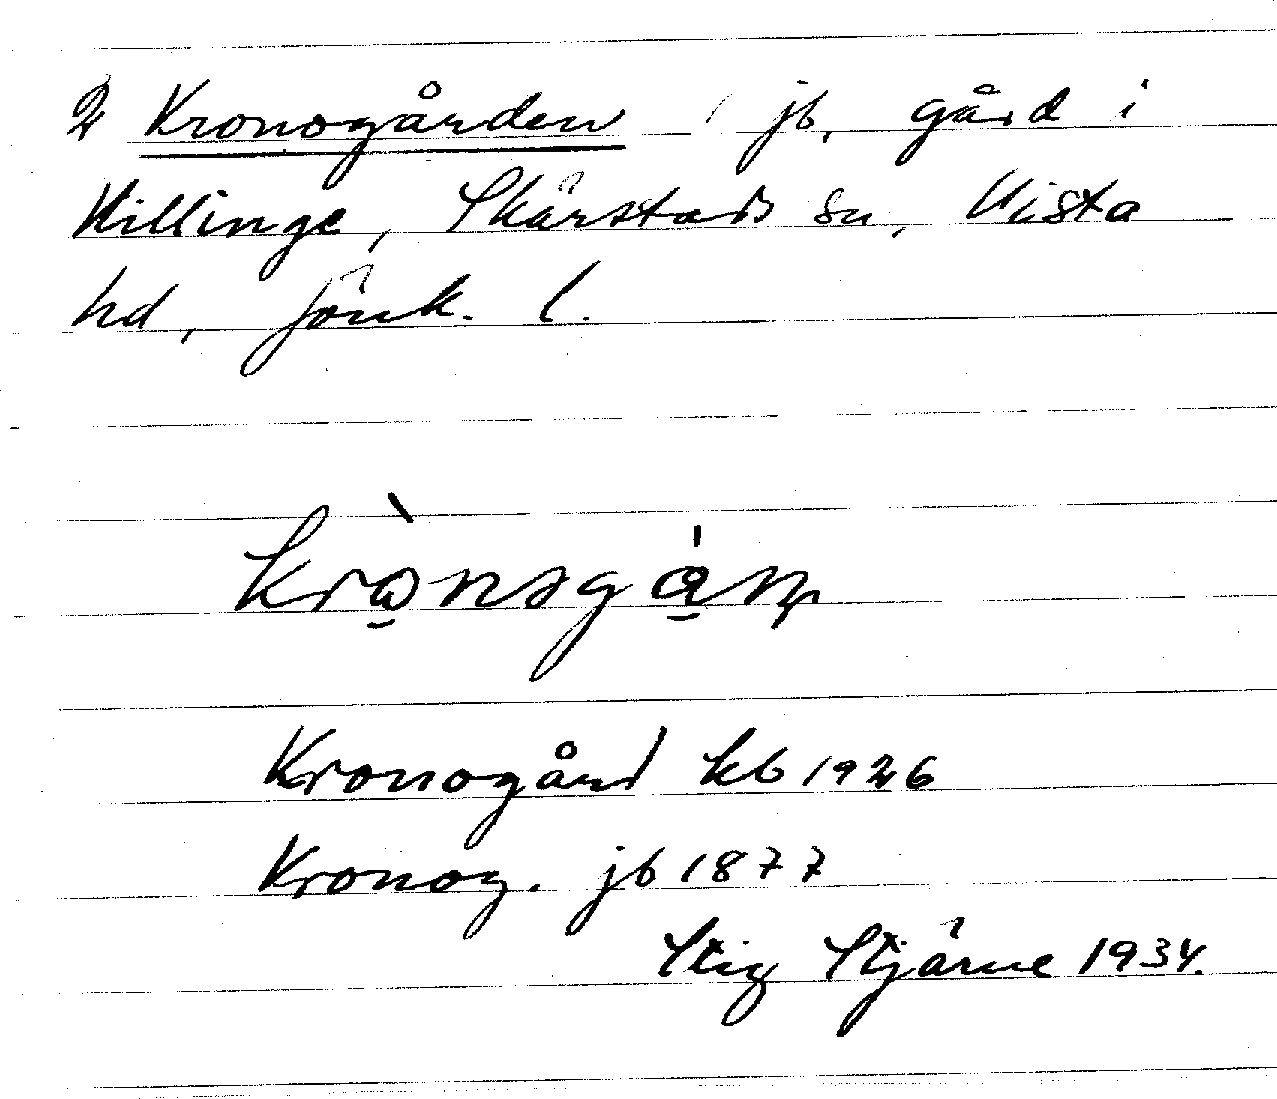 2 Kronogården / jb, gård i
Killinge, Skärstads sn, Vista
hd, Jönk. l.
krò̠nsgá̠ṇ
Kronogård kb 1926
Kronog. jb 1877
Stig Stjärne 1934.